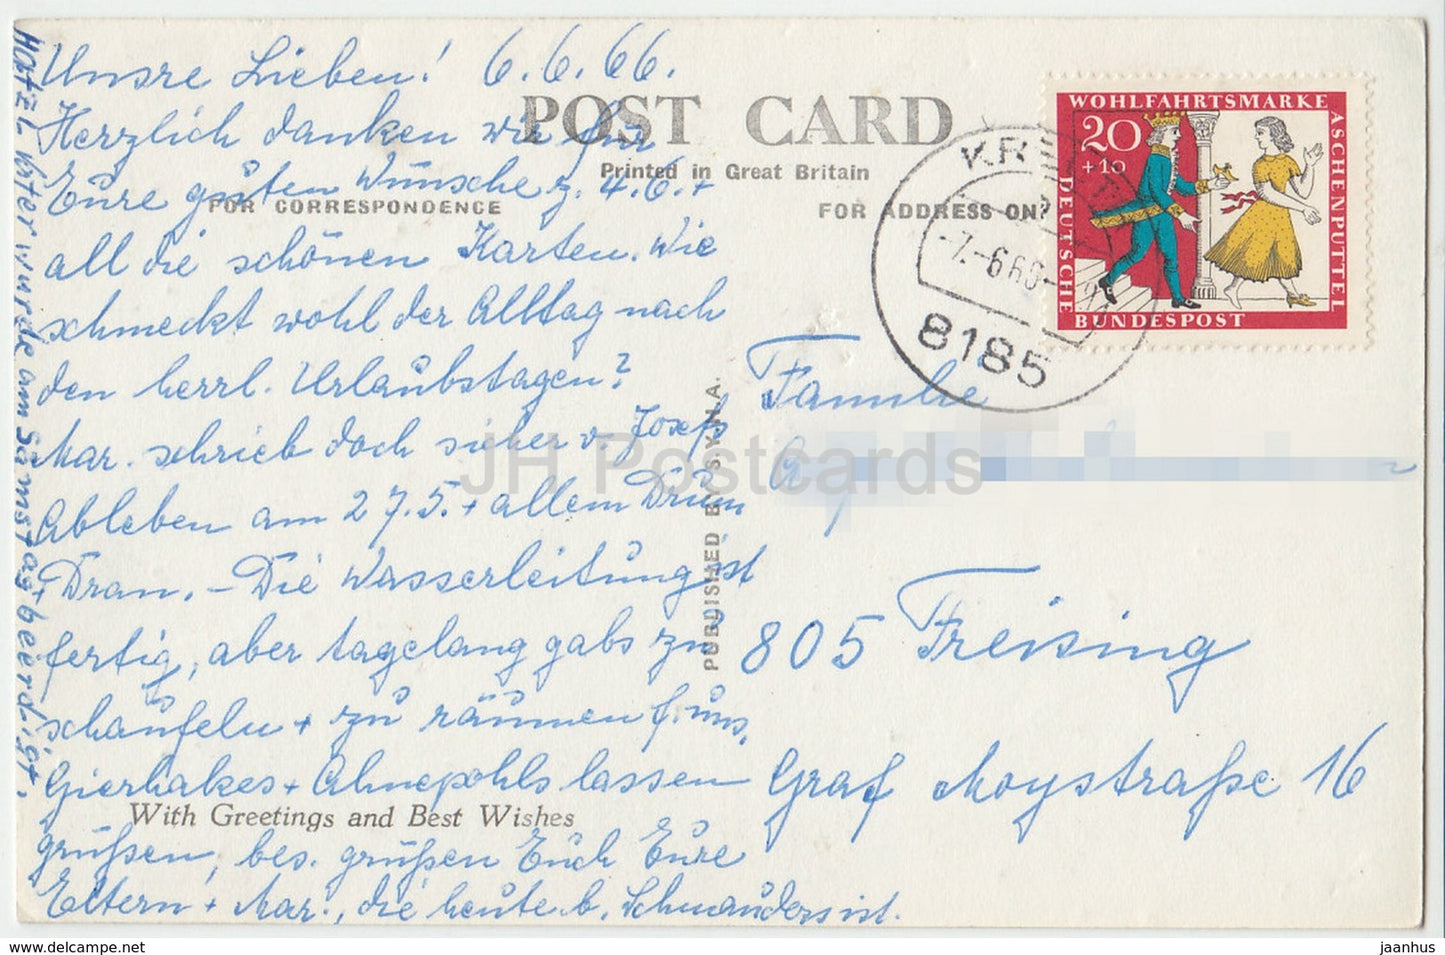 Unsre Lieben! 6.6.66.
Herzlich danken wir für
Eure guten Wünsche z. 4.6. +
all die schönen Karten. Wie
schmeckt wohl der Alltag nach
den herrl. Urlaubstagen?
Mar. schrieb doch sicher v. Josefs
Ableben am 27.5. + allem Drum
+ Dran. – Die Wasserleitung ist
fertig, aber tagelang gabs zu
schaufeln + zu räumen f. uns.
Gierhakes + Ahnepohls lassen
grüßen, bes. grüßen Euch Eure
Eltern + Mar., die heute b. Schwanders ist.
Vater wurde am Samstag beerdigt.
POST CARD
Printed in Great Britain
FOR CORRESPONDENCE
FOR ADDRESS ONLY
PUBLISHED BY S.Y.H.A.
With Greetings and Best Wishes
WOHLFAHRTSMARKE
ASCHENPUTTEL
DEUTSCHE
BUNDESPOST
20
+10
-7.-6.66-
8185
Familie
805 Freising
Graf Moystraße 16
JH Postcards
hotel-postcards.com jaanhus